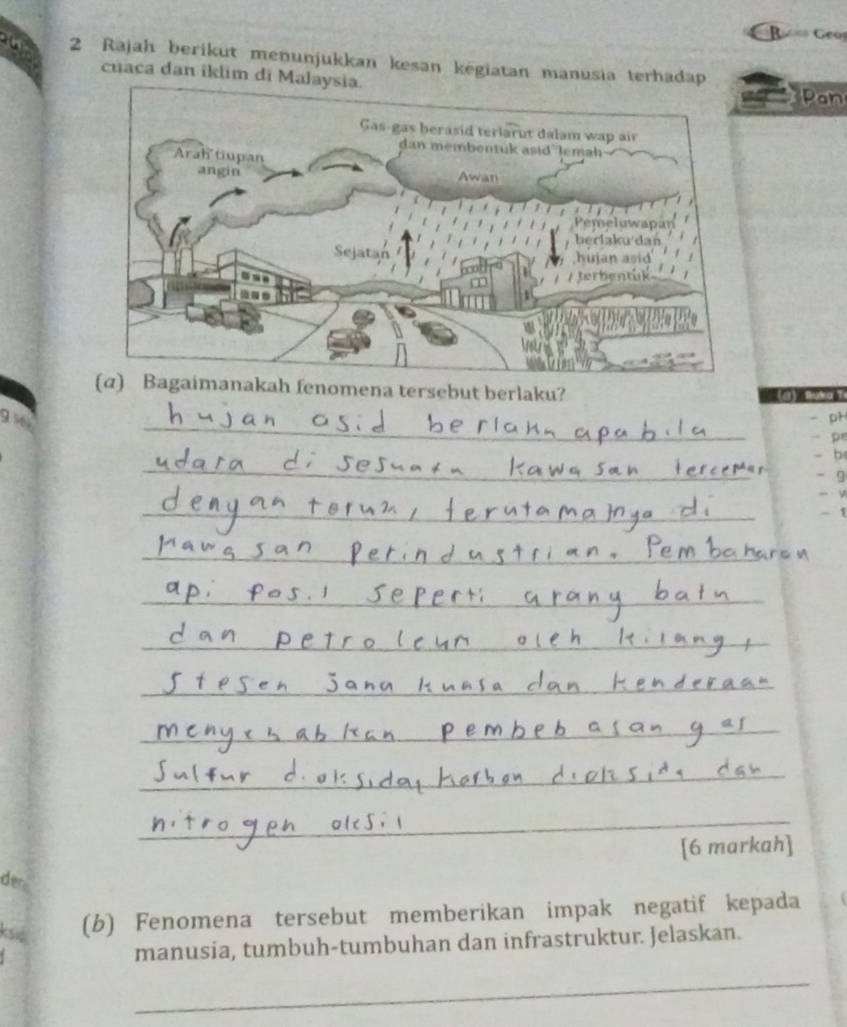 Geog
2 Rajah berikut menunjukkan kesan kegiatan manusia terhadap
cuaca dan iklim di Malaysia.
Pan
Gas-gas berasid terlarut dalam wap air
dan membentuk asid lemah
Arah tiupan
angin
Awan
Pemeluwapan
berlaku dan
hujan asid
terbentuk
Sejatan
(a) Bagaimanakah fenomena tersebut berlaku?
hujan asid berlaku apabila
udara di sesuatu kawasan tercemar
dengan teruk, terutamanya di
kawasan perindustrian. Pembakaran
api fosil seperti arang batu
dan petroleum oleh kilang,
stesen jana kuasa dan kenderaan
menyebabkan pembebasan gas
Sulfur dioksida, karbon dioksida dan
nitrogen oksil
[6 markah]
(b) Fenomena tersebut memberikan impak negatif kepada
manusia, tumbuh-tumbuhan dan infrastruktur. Jelaskan.